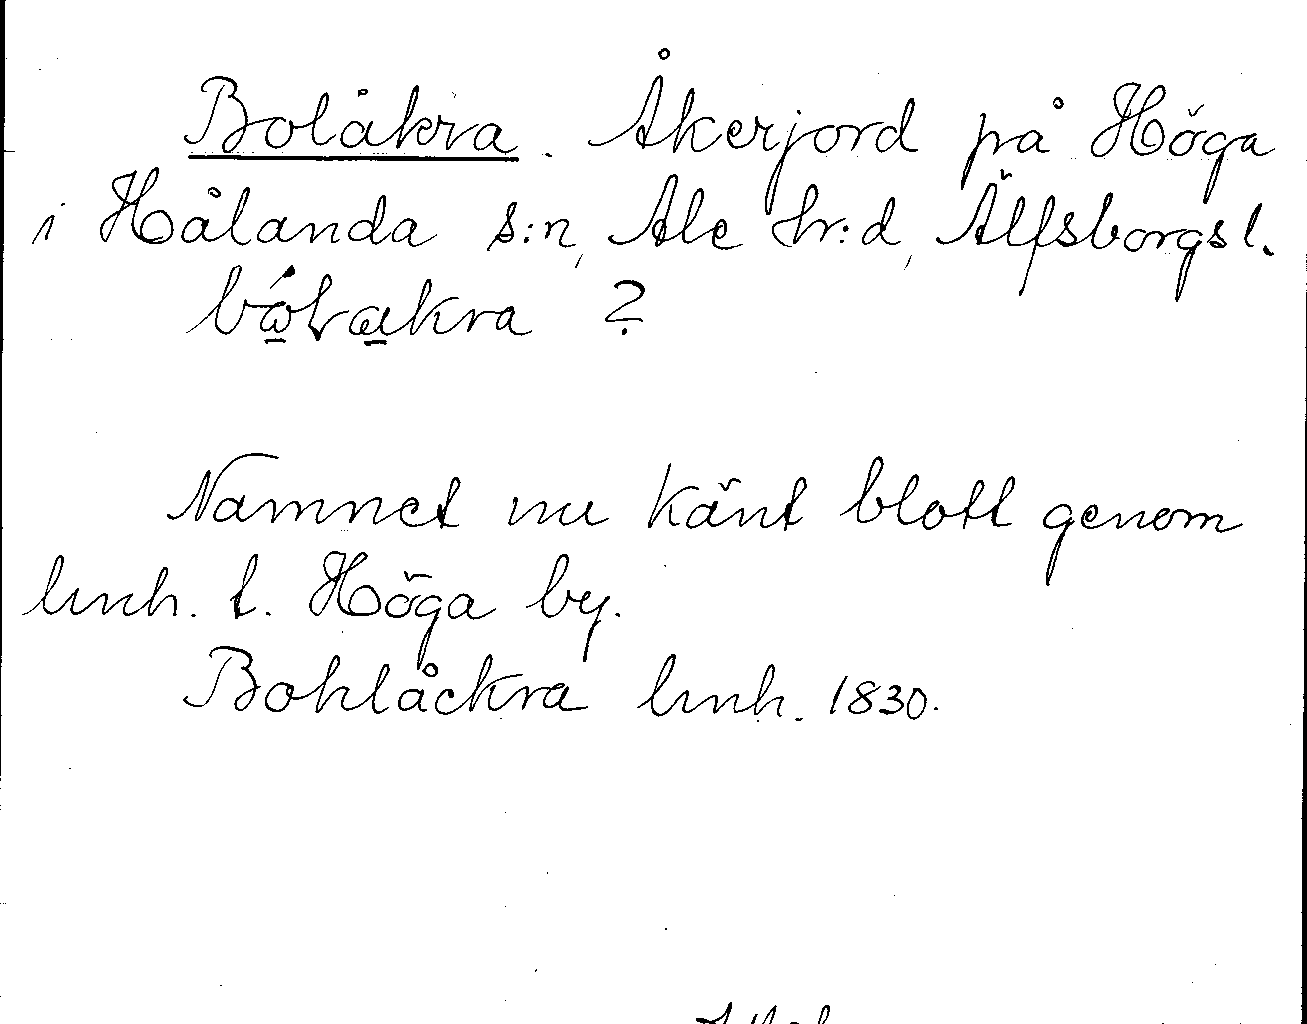 Bolåkra. Åkerjord på Höga
i Hålanda s:n, Ale hr:d, Älfsborgs l.
Namnet nu känt blott genom
lmh. t. Höga by.
Bohlåckra lmh. 1830.